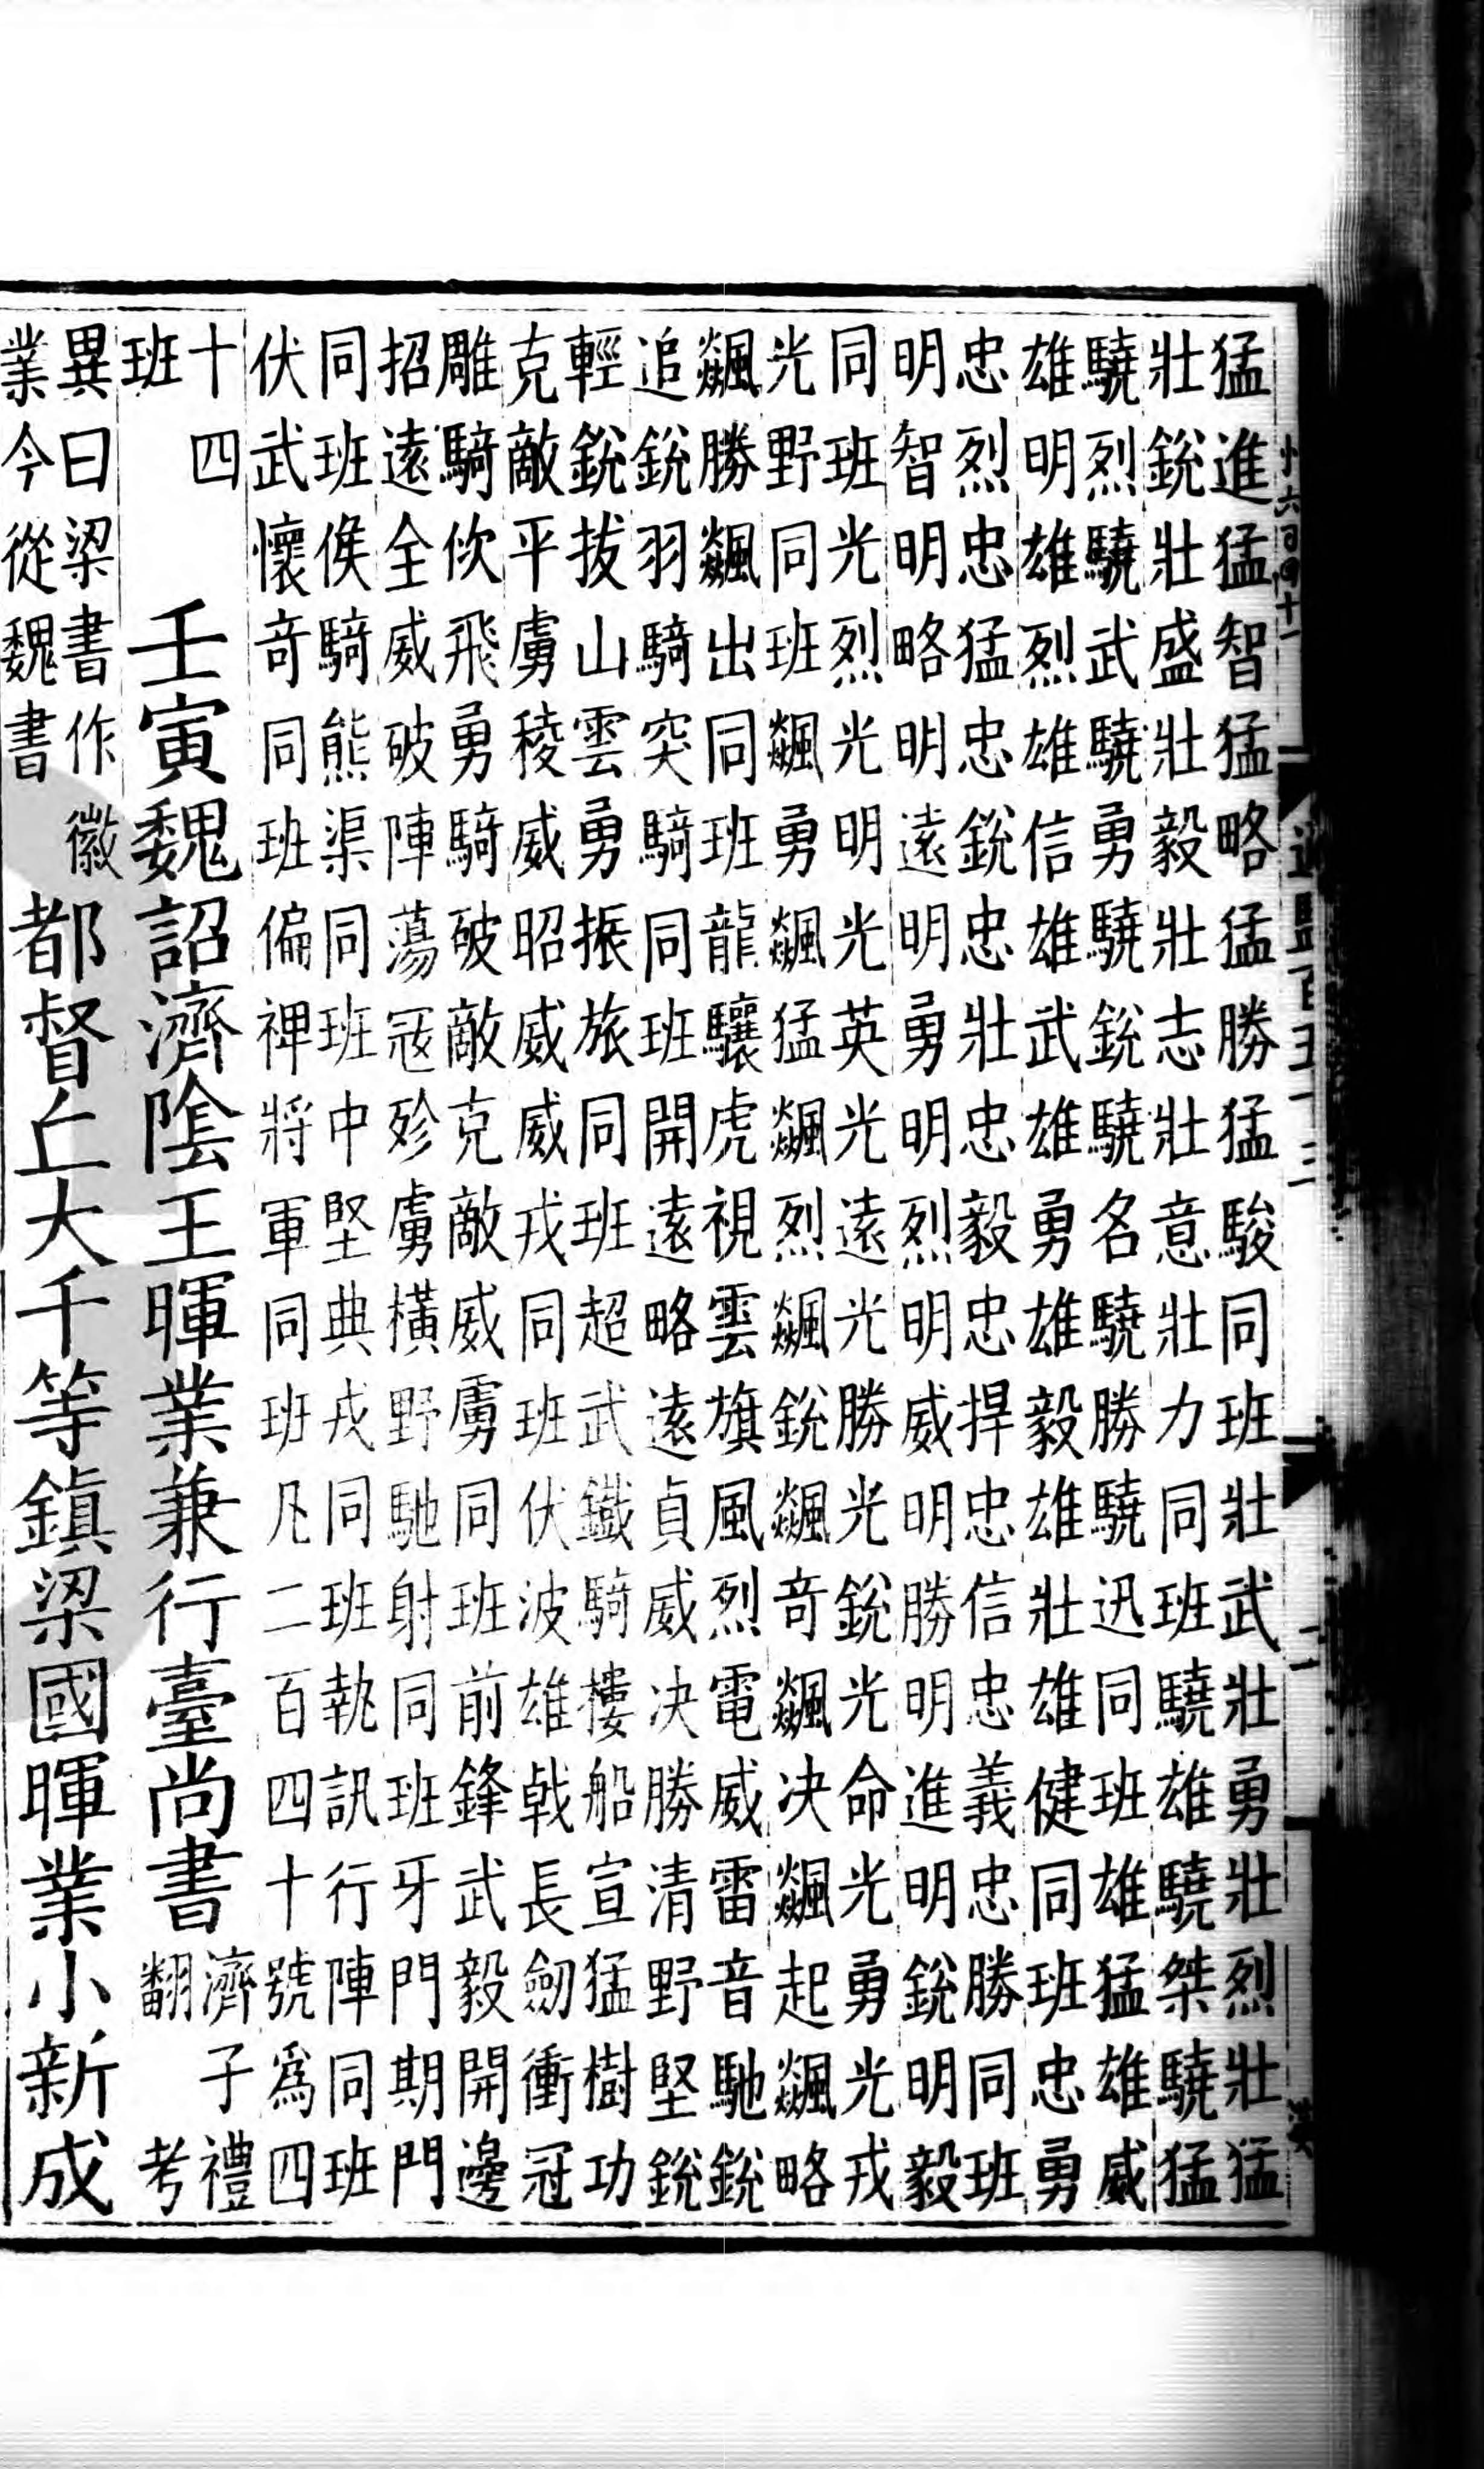 猛進猛智猛略猛勝猛駿同班壯武壯勇壯烈壯猛
壯銳壯盛壯毅壯志壯意壯力同班驍雄驍桀驍猛
驍烈驍武驍勇驍銳驍名驍勝驍迅同班雄猛雄威
雄明雄烈雄信雄武雄勇雄毅雄壯雄健同班忠勇
忠烈忠猛忠銳忠壯忠毅忠捍忠信忠義忠勝同班
明智明略明遠明勇明烈明威明勝明進明銳明毅
同班光烈光明光英光遠光勝光銳光命光勇光戎
光野同班飆勇飆猛飆烈飆銳飆奇飆决飆起飆略
飆勝飆出同班龍驤虎視雲旗風烈電威雷音馳銳
追銳羽騎突騎同班開遠略遠貞威决勝清野堅銳
輕銳拔山雲勇振旅同班超武鐵騎樓船宣猛樹功
克敵平虜稜威昭威威戎同班伏波雄戟長劒衝冠
雕騎佽飛勇騎破敵克敵威虜同班前鋒武毅開邊
招遠全威破陣蕩寇殄虜橫野馳射同班牙門期門
同班候騎熊渠同班中堅典戎同班執訊行陣同班
伏武懷奇同班偏裨將軍同班凡二百四十號爲四
十四
班
壬寅魏詔濟陰王暉業兼行臺尚書
濟子禮
翻考
異曰梁書作徽
業今從魏書
都督丘大千等鎮梁國暉業小新成